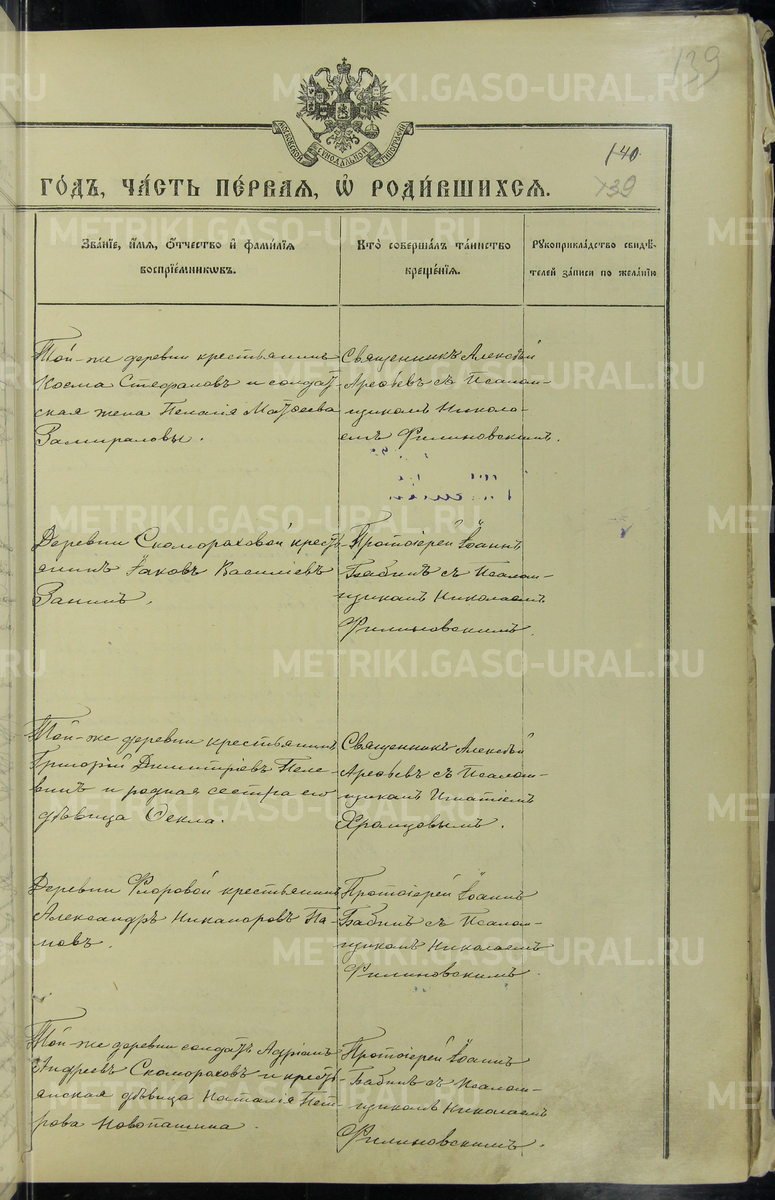 139
МОСКОВСКОЙ СѴНОДАЛЬНОЙ ТИПОГРАФІИ
140
139
ГО́ДЪ, ЧА́СТЬ ПЕ́РВАѦ, Ѡ҆ РОДИ́ВШИХСѦ.
Зва́нїе, и҆́мѧ, ѻ҆́тчество и҆ фами́лїѧ
воспрїе́мникѡвъ.
Кто̀ соверша́лъ та́инство
креще́нїѧ.
Рꙋкоприкла́дство свидѣ́-
телей за́писи по жела́нїю
Той-же деревни крестьянинъ
Косма Стефановъ и солдат-
ская жена Пелагія Матѳеева
Замираловы.
Священникъ Алексѣй
Арефьевъ съ Псалом-
щикомъ Никола-
емъ Филиновскимъ.
Деревни Скомораховой кресть-
янинъ Іаковъ Василіевъ
Занинъ.
Протоіерей Іоаннъ
Бабинъ съ Псалом-
щикомъ Николаемъ
Филиновскимъ.
Той-же деревни крестьянинъ
Григорій Димитріевъ Пеле-
винъ и родная сестра его
дѣвица Ѳекла.
Священникъ Алексѣй
Арефьевъ съ Псалом-
щикомъ Игнатіемъ
Храмцовымъ.
Деревни Фроловой крестьянинъ
Александръ Никаноровъ Па-
новъ.
Протоіерей Іоаннъ
Бабинъ съ Псалом-
щикомъ Николаемъ
Филиновскимъ.
Той-же деревни солдатъ Адріанъ
Андреевъ Скомороховъ и кресть-
янская дѣвица Наталія Пет-
рова Новопашина.
Протоіерей Іоаннъ
Бабинъ съ Псалом-
щикомъ Николаемъ
Филиновскимъ.
METRIKI.GASO-URAL.RU